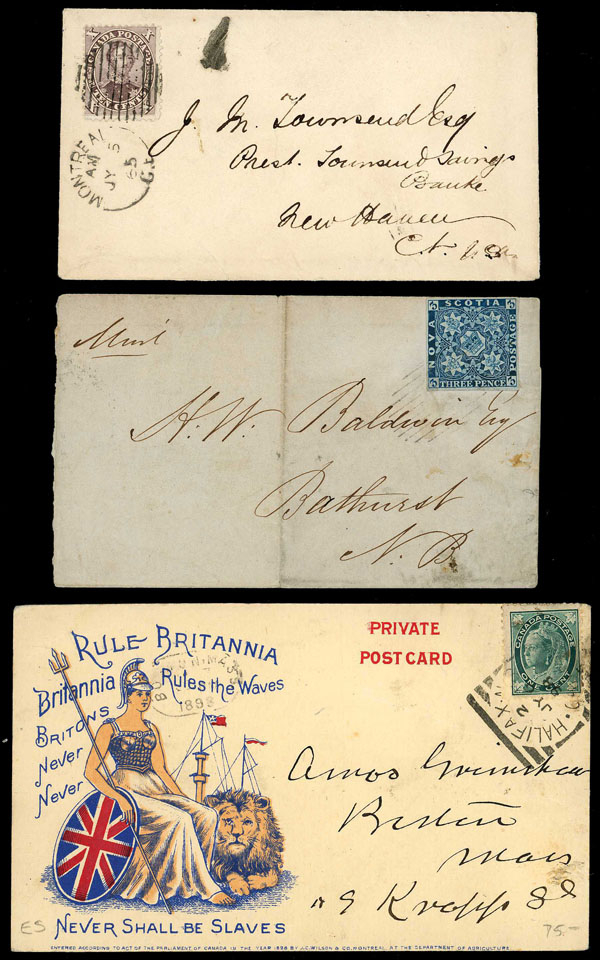 CANADA POSTAGE
TEN CENTS
MONTREAL
AM
JY 5
65
C.E
J. M. Townsend Esq
Prest. Townsend Savings
Banke
New Haven
Ct. USA
NOVA SCOTIA POSTAGE
THREE PENCE
H. W. Baldwin Esq
Bathurst
N. B
RULE BRITANNIA
Britannia Rules the Waves
BRITONS
Never
Never
NEVER SHALL BE SLAVES
PRIVATE
POST CARD
CANADA POSTAGE
HALIFAX
JY 2
MASS
1898
Amos
Boston
Mass
9 Kropps St
ES
75.-
ENTERED ACCORDING TO ACT OF THE PARLIAMENT OF CANADA IN THE YEAR 1898 BY J.C. WILSON & CO. MONTREAL, AT THE DEPARTMENT OF AGRICULTURE.